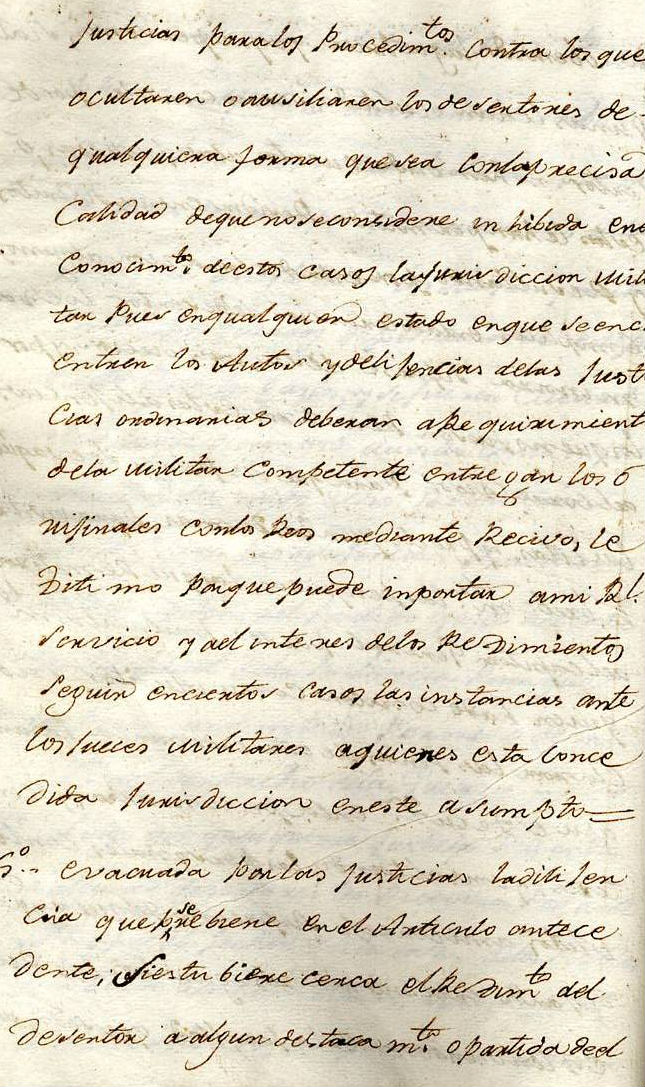 Justicias para los Procedim.tos contra los que
ocultaren o ausiliaren los desertores de
qualquiera forma que sea con la precisa
Calidad de que no se considere inhibida en e
Conocim.to de estos casos la Jurisdiccion Mili
tar Pues en qualquiera estado en que se enc
entren los Autos y delijencias de las Justi
cias ordinarias deberan a Requirimient
de la Militar Competente entregar los o
rijinales con los Reos mediante Recivo, le
Jitimo porque puede inportar a mi Rl.
Servicio y ael interes de los Rejimientos
Seguir en ciertos casos las instancias ante
los Jueces Militares a quienes esta Conce
dida Jurisdiccion en este asumpto=
6.o evacuada por las Justicias la dilijen
cia que se prebiene en el Articulo antece
dente, si estubiere cerca el Rejim.to del
desertor a algun destacam.to o partida de el